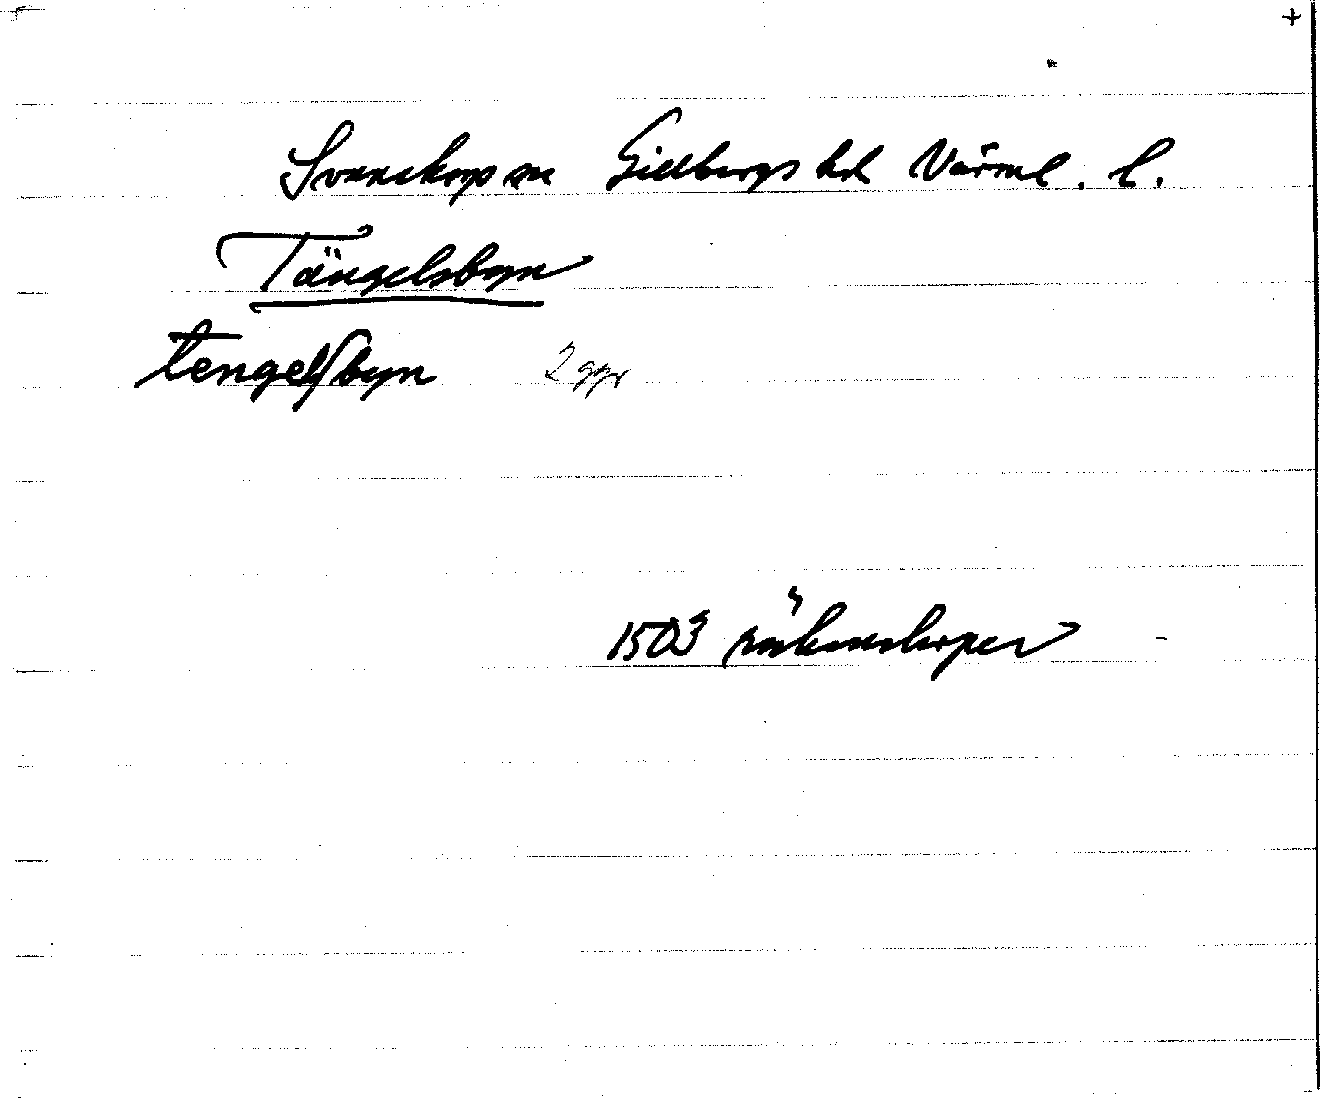 +
Svanskog sn Gillbergs hd Värml. l.
Tängelsbyn
tengelſbyn 2 ggr
1503 räkenskaper